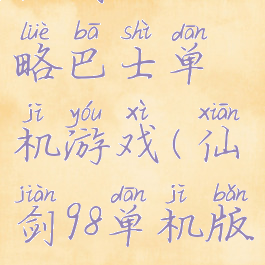 lüè bā shì dān
略巴士单
jī yóu xì ( xiān
机游戏(仙
jiàn dān jī bǎn
剑98单机版